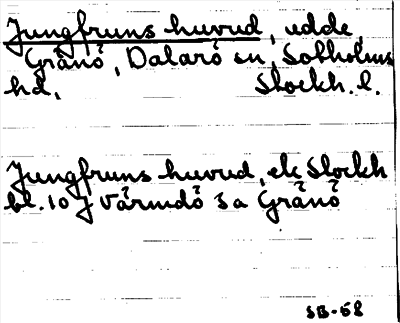 Jungfruns huvud, udde,
Gränö, Dalarö sn, Sotholms
hd, Stockh. l.
Jungfruns huvud, ek Stockh
bl. 10 J Värmdö s a Gränö
SB-58